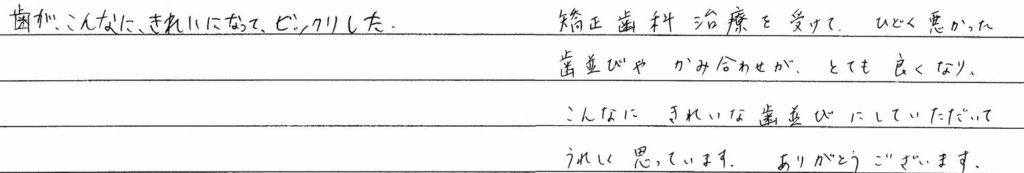 歯が、こんなに、きれいになって、ビックリした.
矯正歯科治療を受けて. ひどく悪かった
歯並びや かみ合わせが、とても 良くなり、
こんなに きれいな歯並びにしていただいて
うれしく思っています. ありがとうございます.